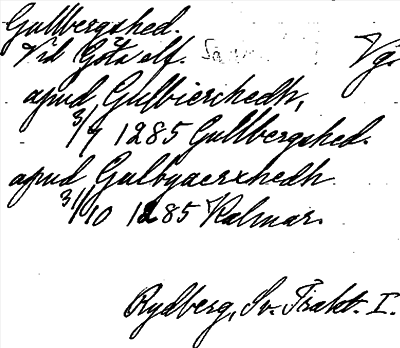 Gullbergshed.
Vid Göta elf. Vg.
apud Gulbierchedh,
3/7 1285 Gullbergshed.
apud Gulbyaerxhedh
31/10 1285 Kalmar.
Rydberg, Sv. Trakt. I.